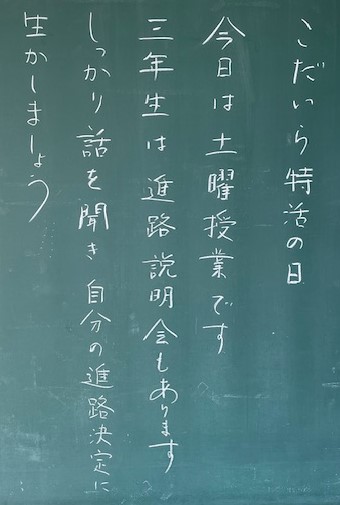 こだいら特活の日
今日は土曜授業です
三年生は進路説明会もあります
しっかり話を聞き自分の進路決定に
生かしましょう